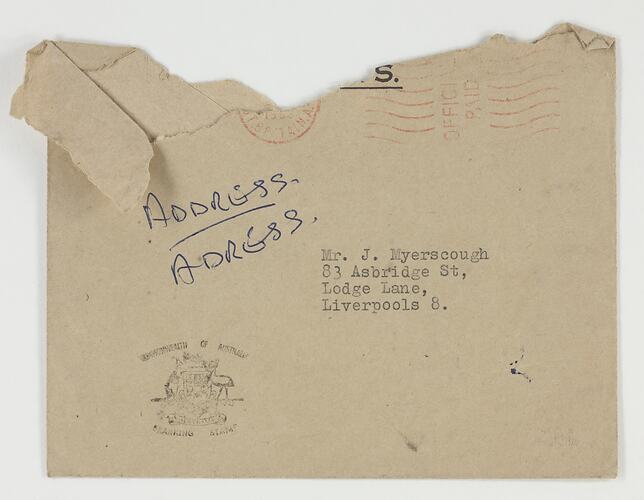 S.
OFFICI
PAID
ADDRESS.
ADRESS.
Mr. J. Myerscough
83 Asbridge St,
Lodge Lane,
Liverpools 8.
COMMONWEALTH OF AUSTRALIA
FRANKING STAMP